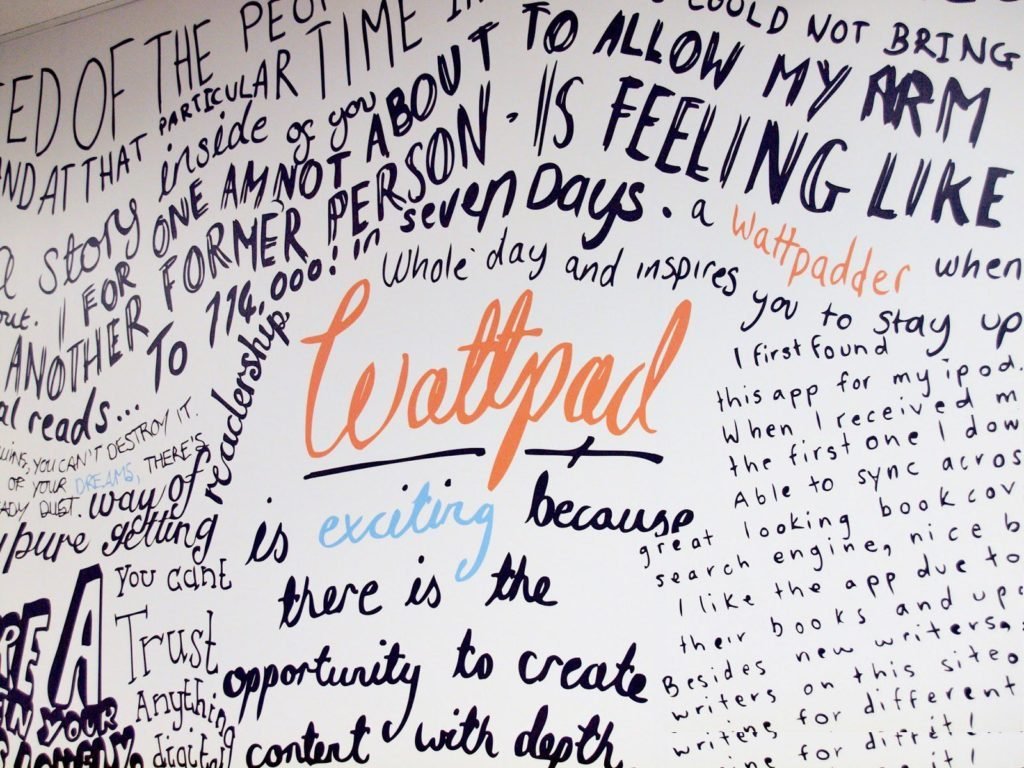 ED OF THE PEO
AND AT THAT PARTICULAR TIME IN
a story inside of you
out. I FOR ONE AM NOT ABOUT TO ALLOW MY ARM
COULD NOT BRING
ANOTHER FORMER PERSON. IS FEELING LIKE
al reads... To 114,000! in seven Days. a wattpadder when
Whole day and inspires
you to stay up
Wattpad
is exciting because
there is the
opportunity to create
content with depth
YOU CAN'T DESTROY IT.
OF YOUR DREAMS, THERE'S
DUST. way of readership.
pure getting
you cant
Trust
Anything
digital
RE A
IN YOUR
I first found
this app for my ipod.
When I received m
the first one I dow
Able to sync acros
great looking book cov
search engine, nice b
I like the app due to
their books and upd
Besides new writers,
writers on this site
writeing for different
ing for diffret!